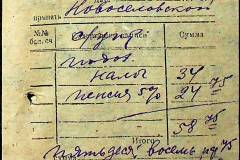 принять Новоселовской
№№ Сумма
бал. сч.
подох.
налог 34
пенсия 5% 24 75
Итого 58 75
пятьдеся восемь р 75